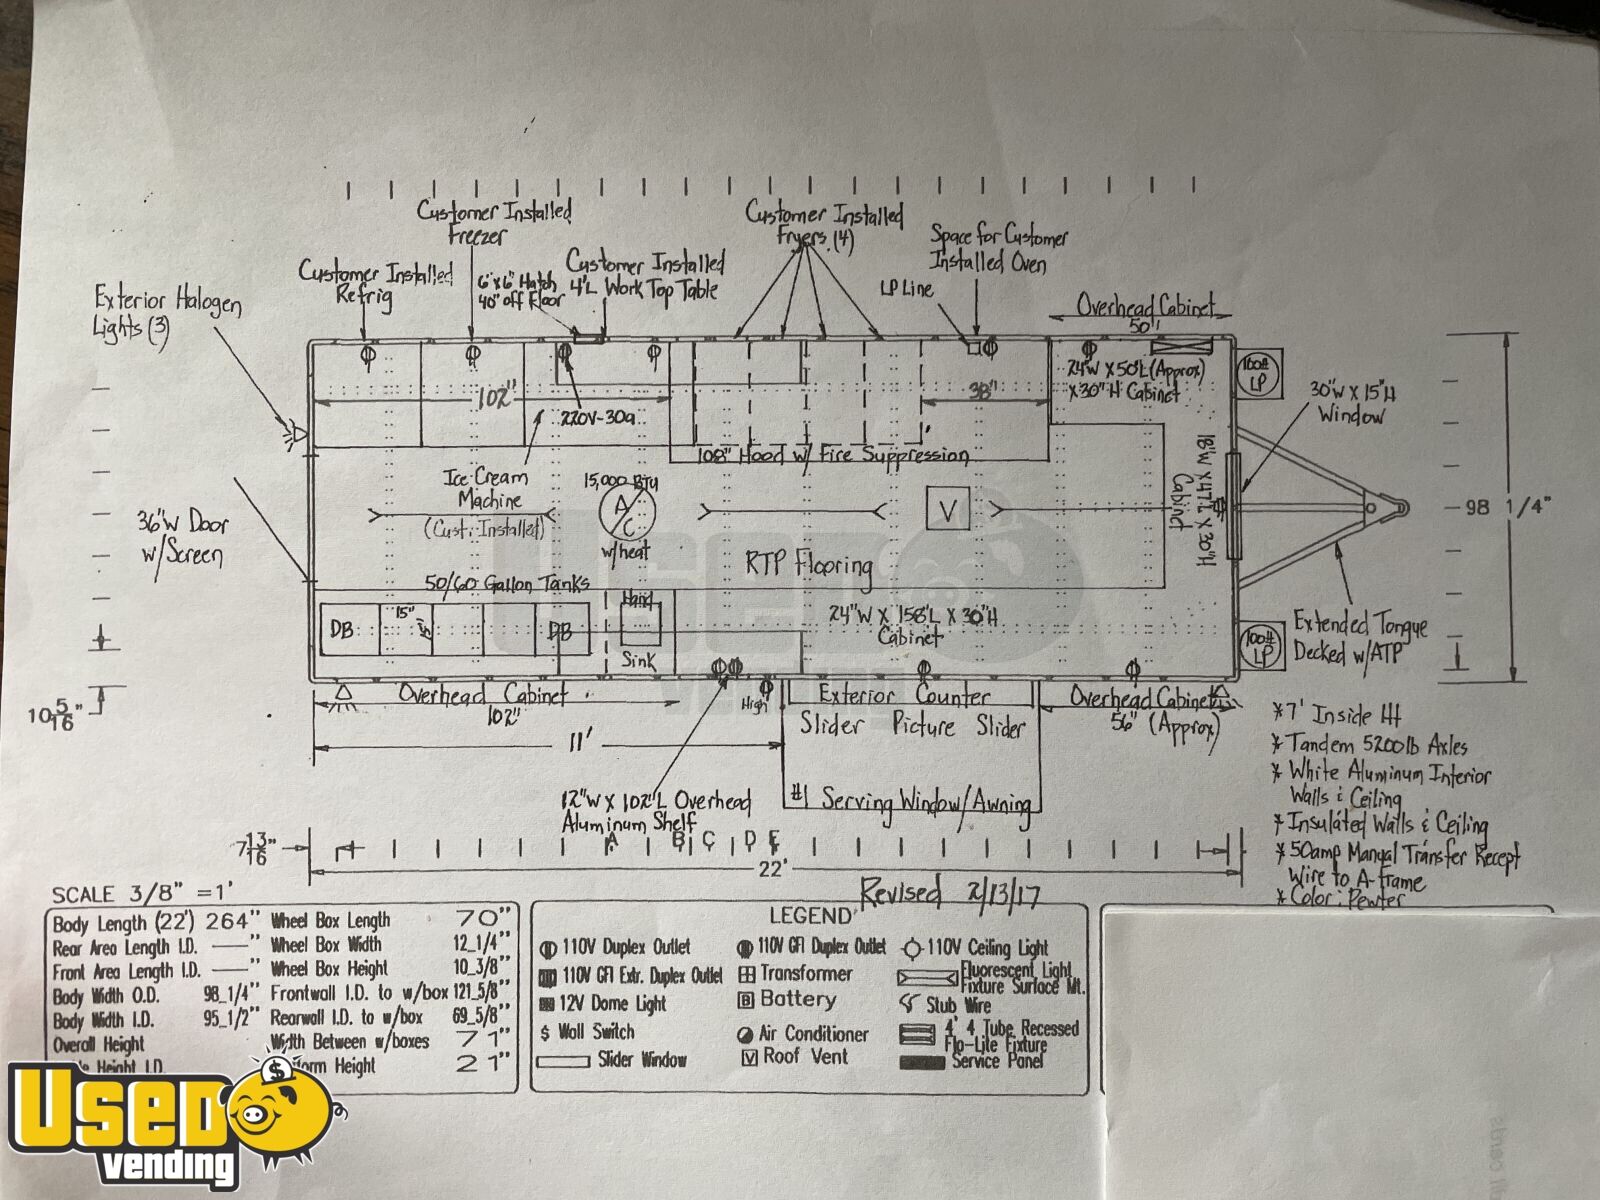 Customer Installed
Freezer
Customer Installed
Fryers (4)
Space for Customer
Installed Oven
Customer Installed
Refrig
6"x6" Hatch
40" off Floor
Customer Installed
4'L Work Top Table
LP Line
Overhead Cabinet
50"
Exterior Halogen
Lights (3)
102"
220V-30a
38"
24"W X 50"L (Approx)
X 30"H Cabinet
100#
LP
30"W X 15"H
Window
108" Hood w/ Fire Suppression
18"W X 47"L X 30"H
Cabinet
Ice Cream
Machine
(Cust. Installed)
15,000 BTU
A/C
w/heat
V
98 1/4"
36"W Door
w/Screen
RTP Flooring
50/60 Gallon Tanks
DB
15"
DB
Hand
Sink
24"W X 158"L X 30"H
Cabinet
100#
LP
Extended Tongue
Decked w/ATP
10 5/16"
Overhead Cabinet
102"
High
Exterior Counter
Slider Picture Slider
Overhead Cabinet
56" (Approx)
11'
#1 Serving Window/Awning
12"W X 102"L Overhead
Aluminum Shelf
*7' Inside Ht
* Tandem 5200lb Axles
* White Aluminum Interior
Walls & Ceiling
* Insulated Walls & Ceiling
* 50amp Manual Transfer Recept
Wire to A-frame
* Color: Pewter
7 13/16"
A B C D E
22'
Revised 2/13/17
SCALE 3/8" =1'
Body Length (22') 264" Wheel Box Length 70"
Rear Area Length I.D. —" Wheel Box Width 12_1/4"
Front Area Length I.D. —" Wheel Box Height 10_3/8"
Body Width O.D. 98_1/4" Frontwall I.D. to w/box 121_5/8"
Body Width I.D. 95_1/2" Rearwall I.D. to w/box 69_5/8"
Overall Height Width Between w/boxes 71"
Height I.D. Height 21"
LEGEND
110V Duplex Outlet
110V GFI Duplex Outlet
110V Ceiling Light
110V GFI Extr. Duplex Outlet
Transformer
Fluorescent Light
Fixture Surface Mt.
12V Dome Light
B Battery
Stub Wire
$ Wall Switch
Air Conditioner
4' 4 Tube Recessed
Flo-Lite Fixture
Slider Window
V Roof Vent
Service Panel
USED
vending
$
USED
vending